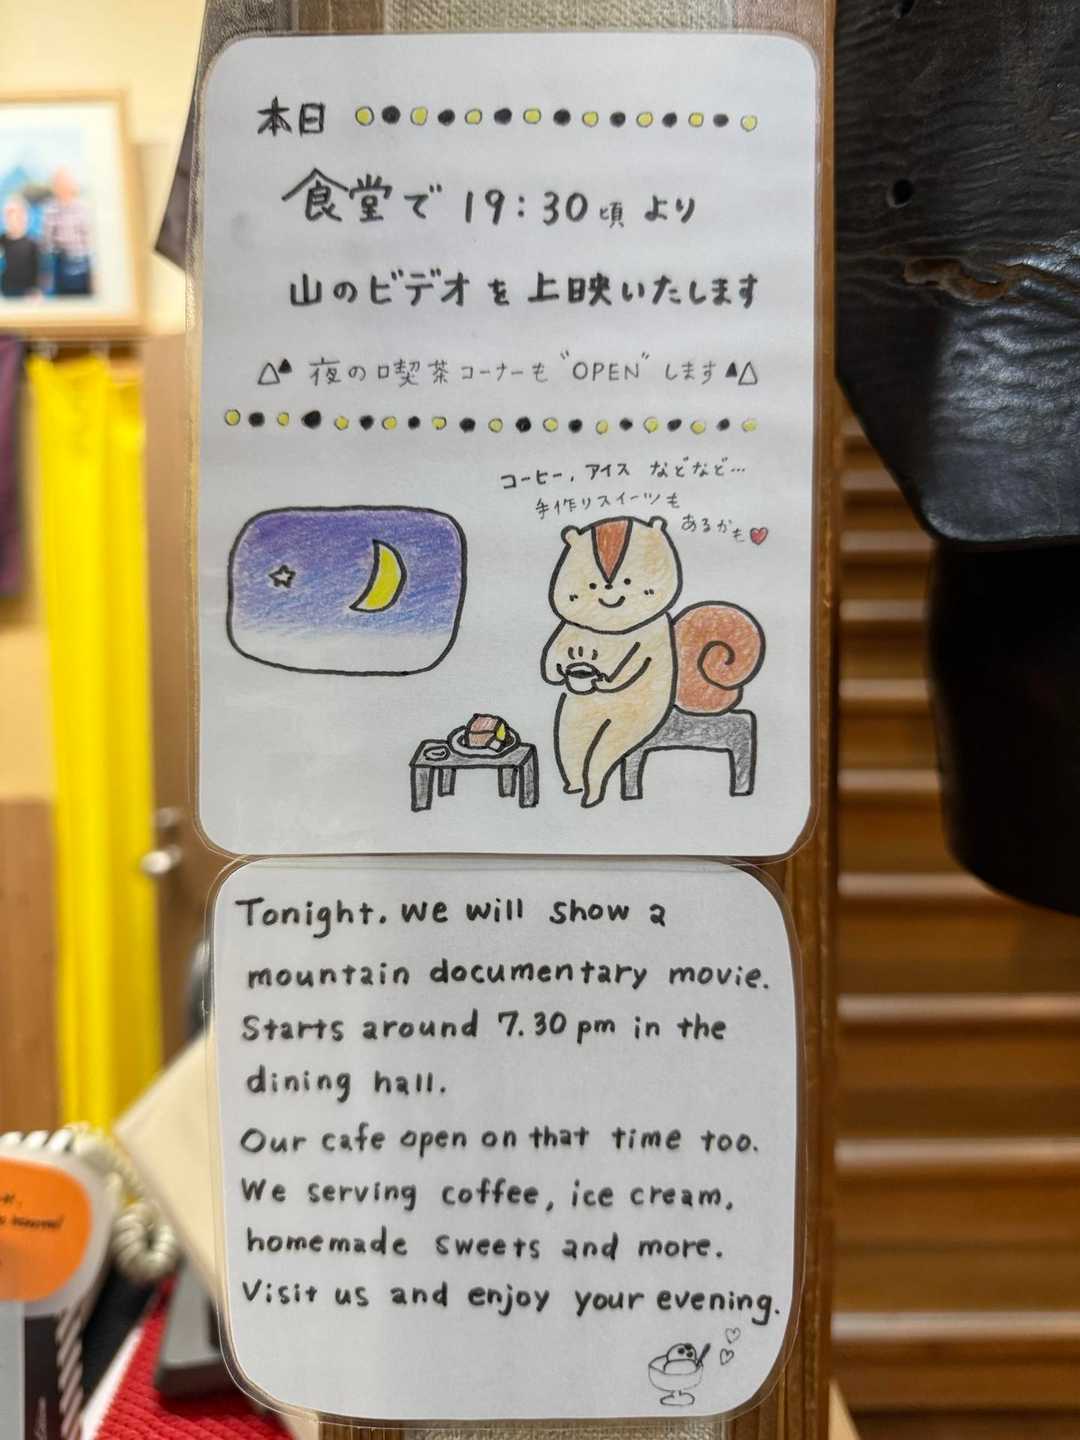 本日
食堂で 19:30頃 より
山のビデオを上映いたします
夜の喫茶コーナーも "OPEN" します
コーヒー, アイス などなど…
手作りスイーツも
あるかも
Tonight. we will show a
mountain documentary movie.
Starts around 7.30 pm in the
dining hall.
Our cafe open on that time too.
We serving coffee, ice cream,
homemade sweets and more.
Visit us and enjoy your evening.